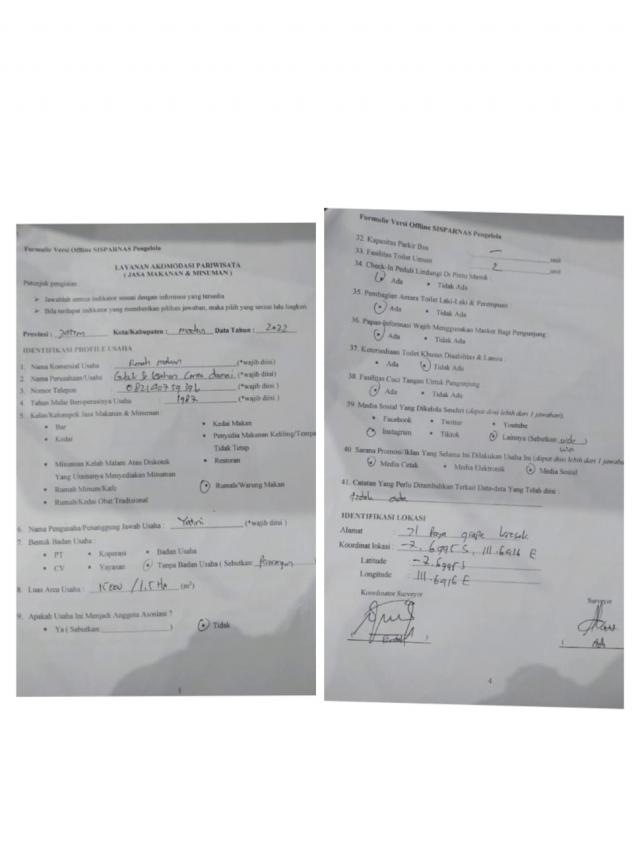 Formulir Versi Offline SISPARNAS Pengelola
LAYANAN AKOMODASI PARIWISATA
( JASA MAKANAN & MINUMAN )
Petunjuk pengisian
➢ Jawablah semua indikator sesuai dengan informasi yang tersedia
➢ Bila terdapat indikator yang memberikan pilihan jawaban, maka pilih yang sesuai lalu lingkari
Provinsi : Jatim Kota/Kabupaten : madiun Data Tahun : 2022
IDENTIFIKASI PROFILE USAHA
1. Nama Komersial Usaha : Rumah makan (*wajib diisi)
2. Nama Perusahaan/Usaha : (*wajib diisi)
3. Nomor Telepon : (*wajib diisi )
4. Tahun Mulai Beroperasinya Usaha : 1987 (*wajib diisi )
5. Kelas/Kelompok Jasa Makanan & Minuman :
• Bar
• Kedai
• Minuman Kelab Malam Atau Diskotek
Yang Utamanya Menyediakan Minuman
• Rumah Minum/Kafe
• Rumah/Kedai Obat Tradisional
• Kedai Makan
• Penyedia Makanan Keliling/Tempat
Tidak Tetap
• Restoran
• Rumah/Warung Makan
6. Nama Pengusaha/Penanggung Jawab Usaha : (*wajib diisi )
7. Bentuk Badan Usaha :
• PT • Koperasi • Badan Usaha
• CV • Yayasan • Tanpa Badan Usaha ( Sebutkan: )
8. Luas Area Usaha : / 1,5 Ha (m²)
9. Apakah Usaha Ini Menjadi Anggota Asosiasi ?
• Ya ( Sebutkan: ) • Tidak
1
Formulir Versi Offline SISPARNAS Pengelola
32. Kapasitas Parkir Bus : – unit
33. Fasilitas Toilet Umum : 2 unit
34. Check-In Peduli Lindungi Di Pintu Masuk
• Ada • Tidak Ada
35. Pembagian Antara Toilet Laki-Laki & Perempuan
• Ada • Tidak Ada
36. Papan Informasi Wajib Menggunakan Masker Bagi Pengunjung
• Ada • Tidak Ada
37. Ketersediaan Toilet Khusus Disabilitas & Lansia :
• Ada • Tidak Ada
38. Fasilitas Cuci Tangan Untuk Pengunjung
• Ada • Tidak Ada
39. Media Sosial Yang Dikelola Sendiri (dapat diisi lebih dari 1 jawaban).
• Facebook • Twitter • Youtube
• Instagram • Tiktok • Lainnya (Sebutkan:
40. Sarana Promosi/Iklan Yang Selama Ini Dilakukan Usaha Ini (dapat diisi lebih dari 1 jawaban
• Media Cetak • Media Elektronik • Media Sosial
41. Catatan Yang Perlu Ditambahkan Terkait Data-data Yang Telah diisi :
tidak ada
IDENTIFIKASI LOKASI
Alamat : Jl Raya
Koordinat lokasi : -7.6995 S, 111.6916 E
Latitude : -7.6995 S
Longitude : 111.6916 E
Koordinator Surveyor
Surveyor
4